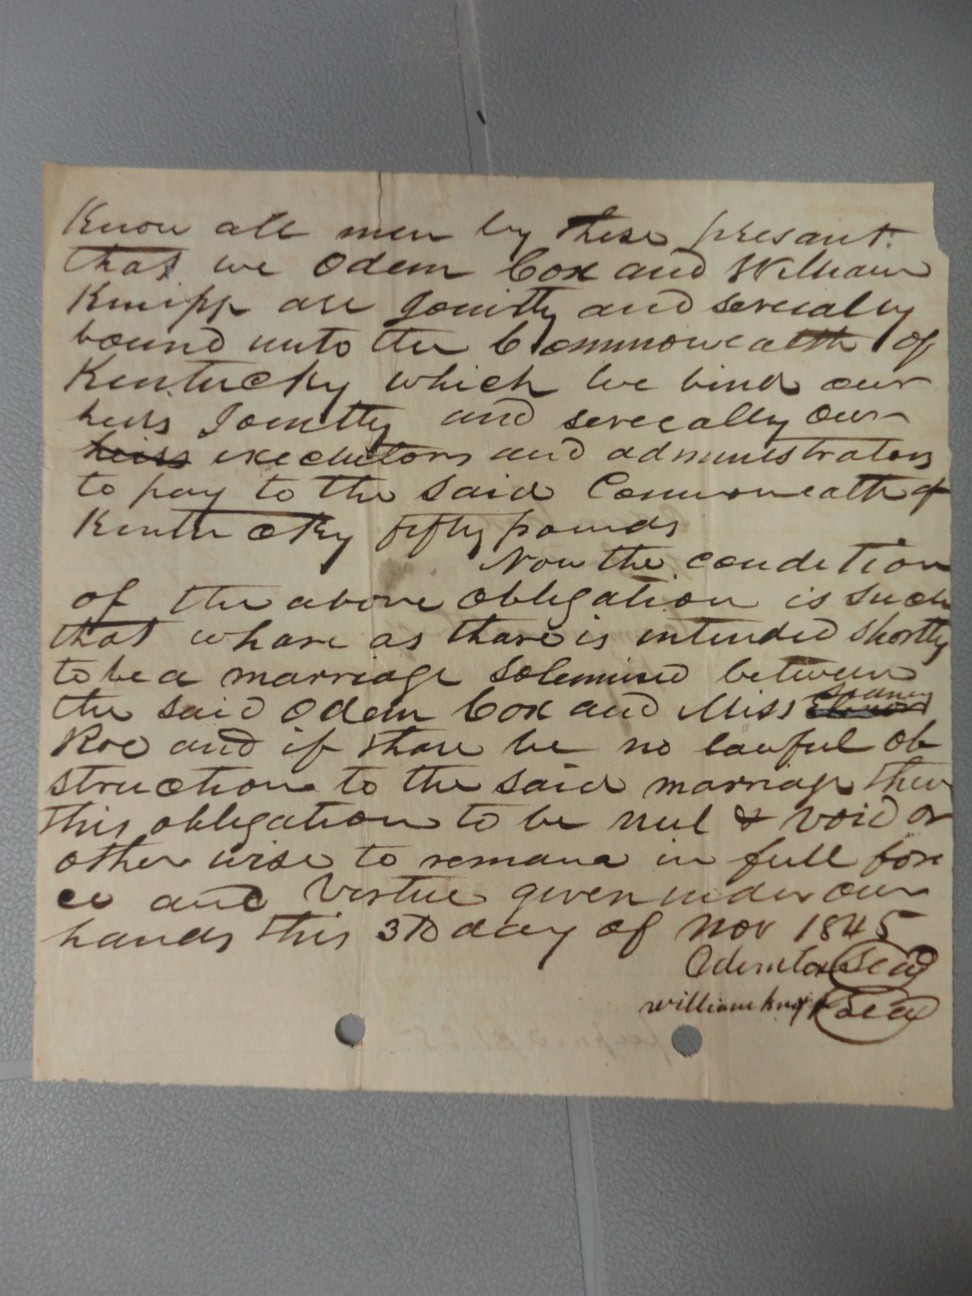 Know all men by these presant.
that we Odem Cox and William
Knipp are Jointly and severally
bound unto the Commonwealth of
Kentucky which we bind our
heirs Jointly and severally our
heirs executors and administrators
to pay to the said Commonwealth of
Kentucky fifty pounds
Now the condition
of the above obligation is such
that whare as thare is intended shortly
to be a marriage solemnised between
the said Odem Cox and Miss
Roe and if thare be no lawful ob
struction to the said marriage then
this obligation to be nul & void or
other wise to remane in full for
ce and virtue given under our
hands this 3D day of Nov 1845
Odem Cox Seal
William Knipp Seal